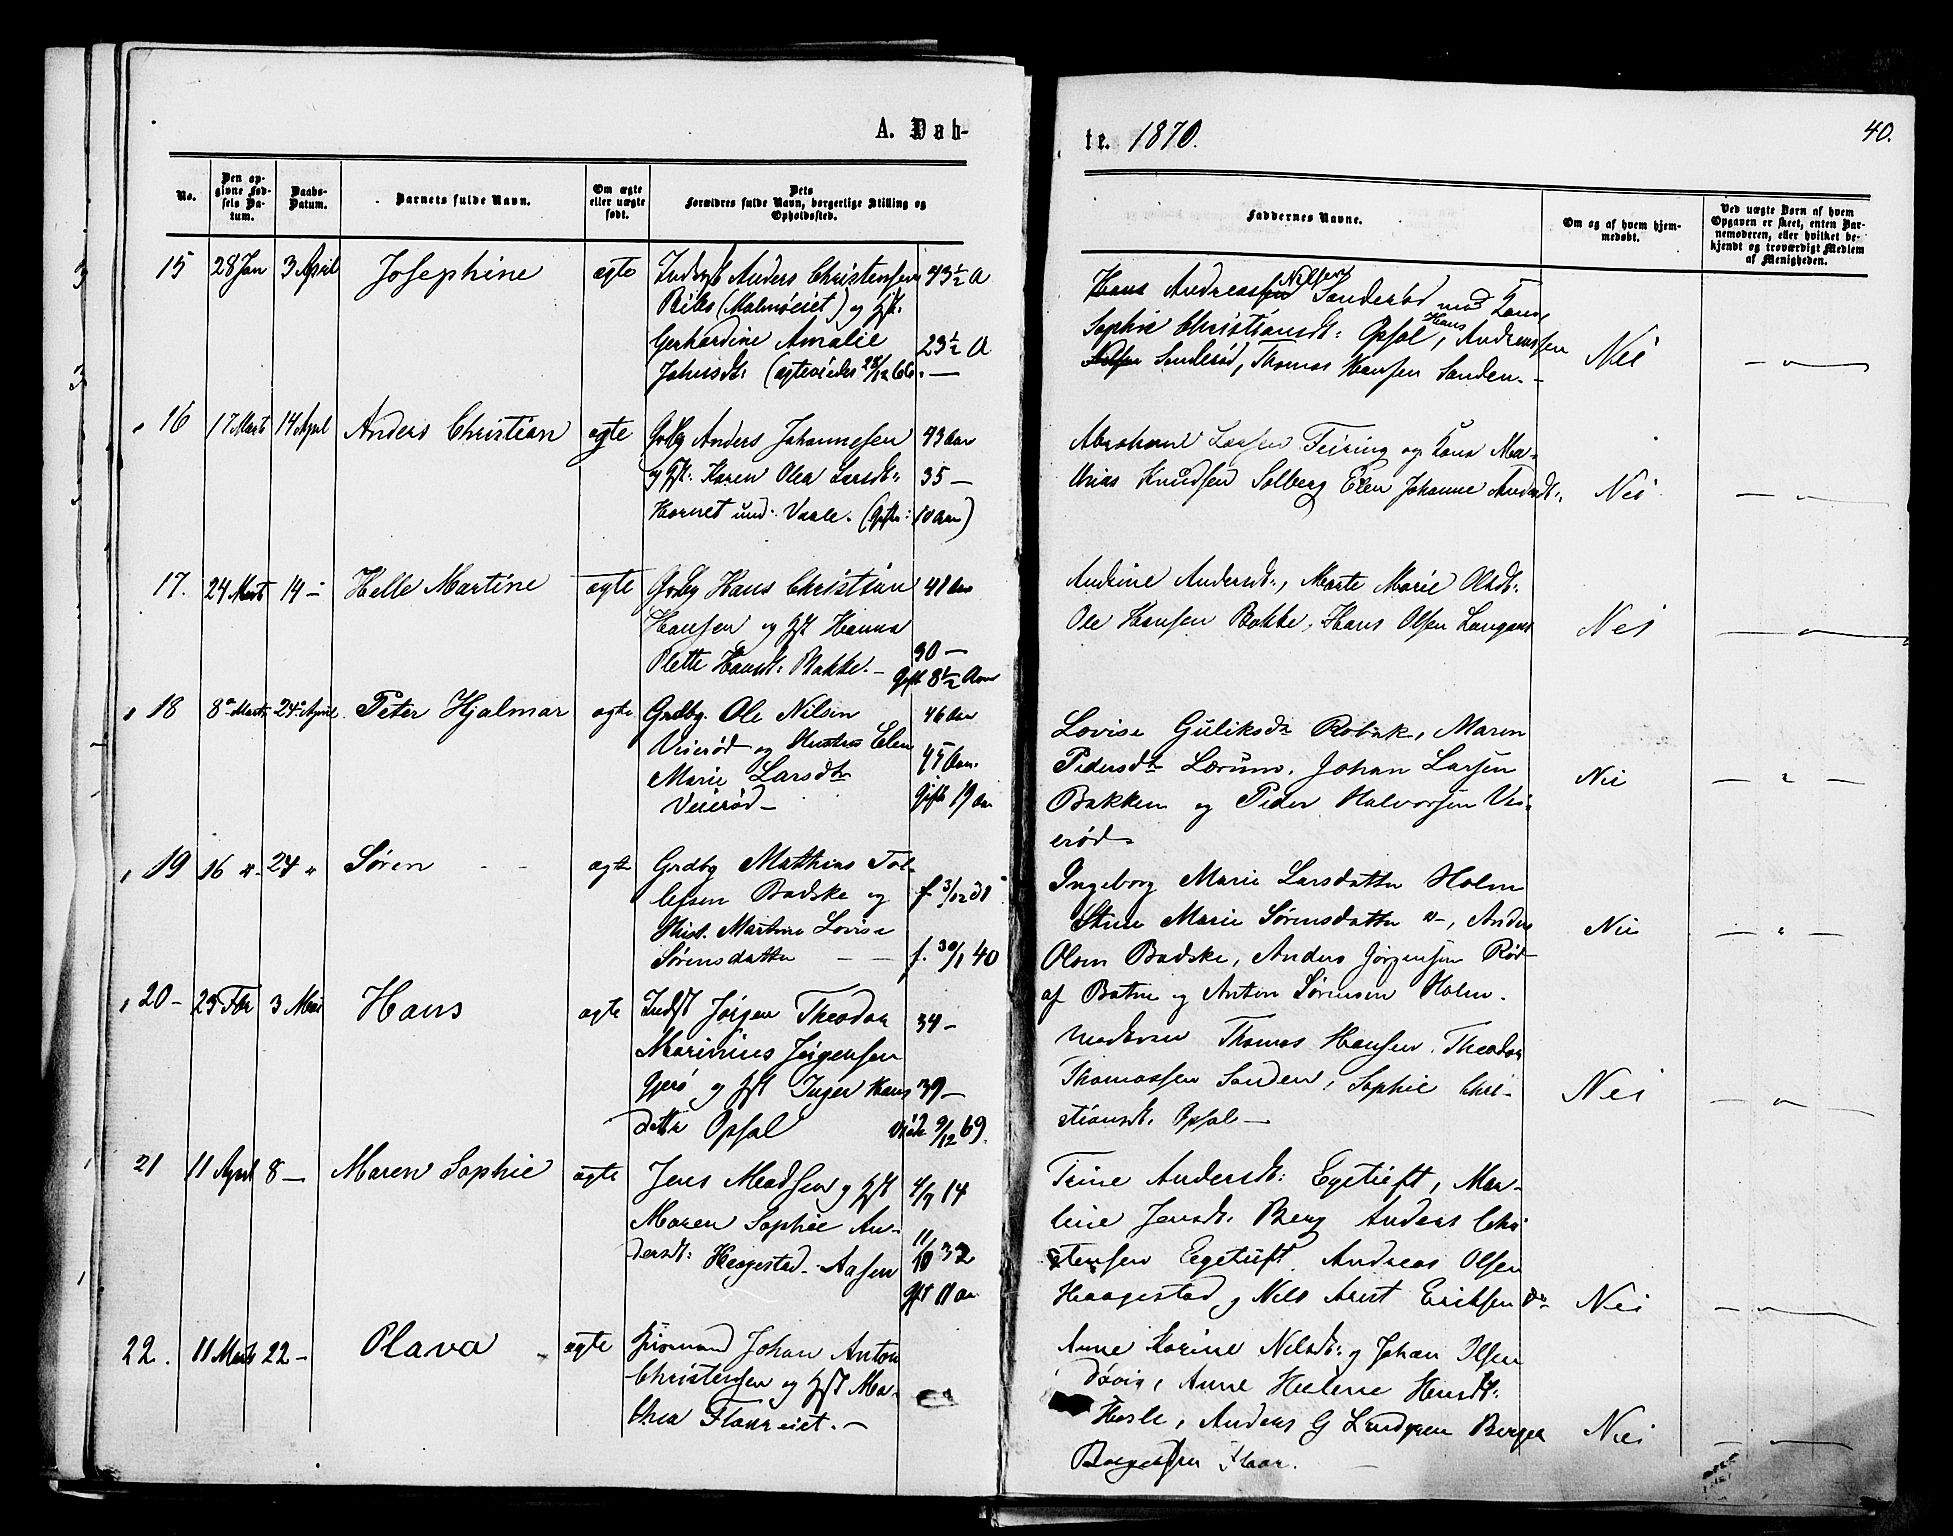 A. Dab-
te. 1870.
40.
No.
Den op-
givne Fød-
sels Da-
tum.
Daabs-
Datum.
Barnets fulde Navn.
Om ægte
eller uægte
født.
Dets
Forældres fulde Navn, borgerlige Stilling og
Opholdssted.
Faddernes Navne.
Om og af hvem hjem-
medøbt.
Ved uægte Børn af hvem
Opgaven er skeet, enten Bar-
nemoderen, eller hvilket be-
kjendt og troværdigt Medlem
af Menigheden.
15 28 Jan 3 April Josephine ægte
Anders Christensen 43½ A
(Malmöeiet) og Hst.
Gerhardine Amalie 23½ A
Johnsdt. (egteviedes 28/12 66. —
Hans Andreassen Nilsen Sanderød med Kone
Sophie Christiansdt: Opsal, Hans Andreassen
Nilsen Sanderød, Thomas Hansen Sanden. —
Nei — " —
16 17 Marts 14 April Anders Christian ægte
Grdbg Anders Johannesen 43 Aar
og Hst: Karen Olea Larsdt: 35 —
Hornet und. Vaale. (Gifte: 10 Aar)
Abraham Larsen Feiring og Kone Ma-
thias Knudsen Solberg Elen Johanne Andersdt:
Nei — " —
17. 24 Marts 14 — Helle Martine ægte
Grdbg Hans Christian 41 Aar
Hansen og Hst Hanna
Olette Hansdt: Bakke. — 30 —
Gift 8½ Aar
Andrine Andersdt:, Marte Marie Olsdt:
Ole Hansen Bakke, Hans Olsen Langaas
Nei — " —
18 8de Marts 24de April Peter Hjalmar ægte
Grdbg. Ole Nilsen 46 Aar
Veierød og Hustru Elen 45 Aar.
Marie Larsdtr Gifte 19 Aar
Veierød —
Lovise Guliksdtr Robæk, Maren
Pedersdtr Lærum, Johan Larsen
Bakken og Peder Halvorsen Vei-
erød
Nei — " —
19 16 " 24 " Søren — — ægte
Grdbg Mathias Tol-
lefsen Badske og f. 3/12 31
Hust. Martine Lovise
Sørensdatter — — f. 30/1 40
Ingeborg Marie Larsdatter Holm
Stine Marie Sørensdatter " —, Anders
Olsen Badske, Anders Jørgensen Rød
af Botne og Anton Sørensen Holm.
Nei — " —
20 — 23 Febr 3 Mai Hans ægte
Indst Jörgen Theodor 34 —
Marinius Jörgensen
og Hst Inger Hans 39 —
datter Opsal Viede 9/12 69.
Moderen Thomas Hansen, Theodor
Thomassen Sanden, Sophie Chri-
stiansdt. Opsal —
Nei — " —
21 11 April 8 — Maren Sophie ægte
Jens Madsen og Hst 4/7 14
Maren Sophie An- 11/10 32
dersdt: Haagestad — Aasen
Gift 11 Aar
Trine Andersdt: Egetuft, Mar-
tine Jensdt. Berg Anders Chri
stensen Egetuft, Andreas Olsen
Haagestad og Nils Arnt Eriksen do
Nei — " —
22. 11 Marts 22 — Olava ægte
Sömand Johan Anton
Christensen og Hst Ma-
thea Flaareiet. —
Anne Karine Nilsdt: og Johan Olsen
Anne Helene Hansdt:
Hesle, Anders G Lindgren Berger
Flaar.
Nei — " —